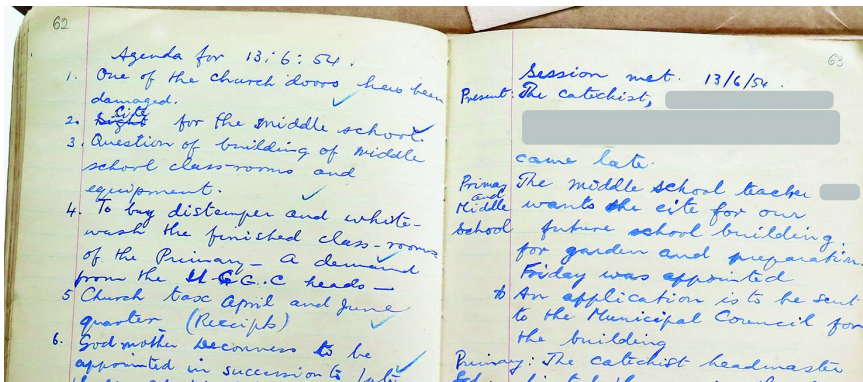 62
Agenda for 13:6:54.
1. One of the church doors has been
damaged.
2. Cite for the middle school.
3. Question of building of middle
school class-rooms and
equipment.
4. To buy distemper and white-
wash the finished class-rooms
of the Primary - A demand
from the G.C heads -
5 Church tax April and June
quarter (Receipts)
6. God mother Deconness to be
appointed in succession to
63
Session met. 13/6/54.
Present: The catechist,
came late.
Primary and Middle School
The middle school teacher
wants the cite for our
future school building
for garden and preparation.
Friday was appointed
An application is to be sent
to the Municipal Council for
the building
Primary: The catechist headmaster